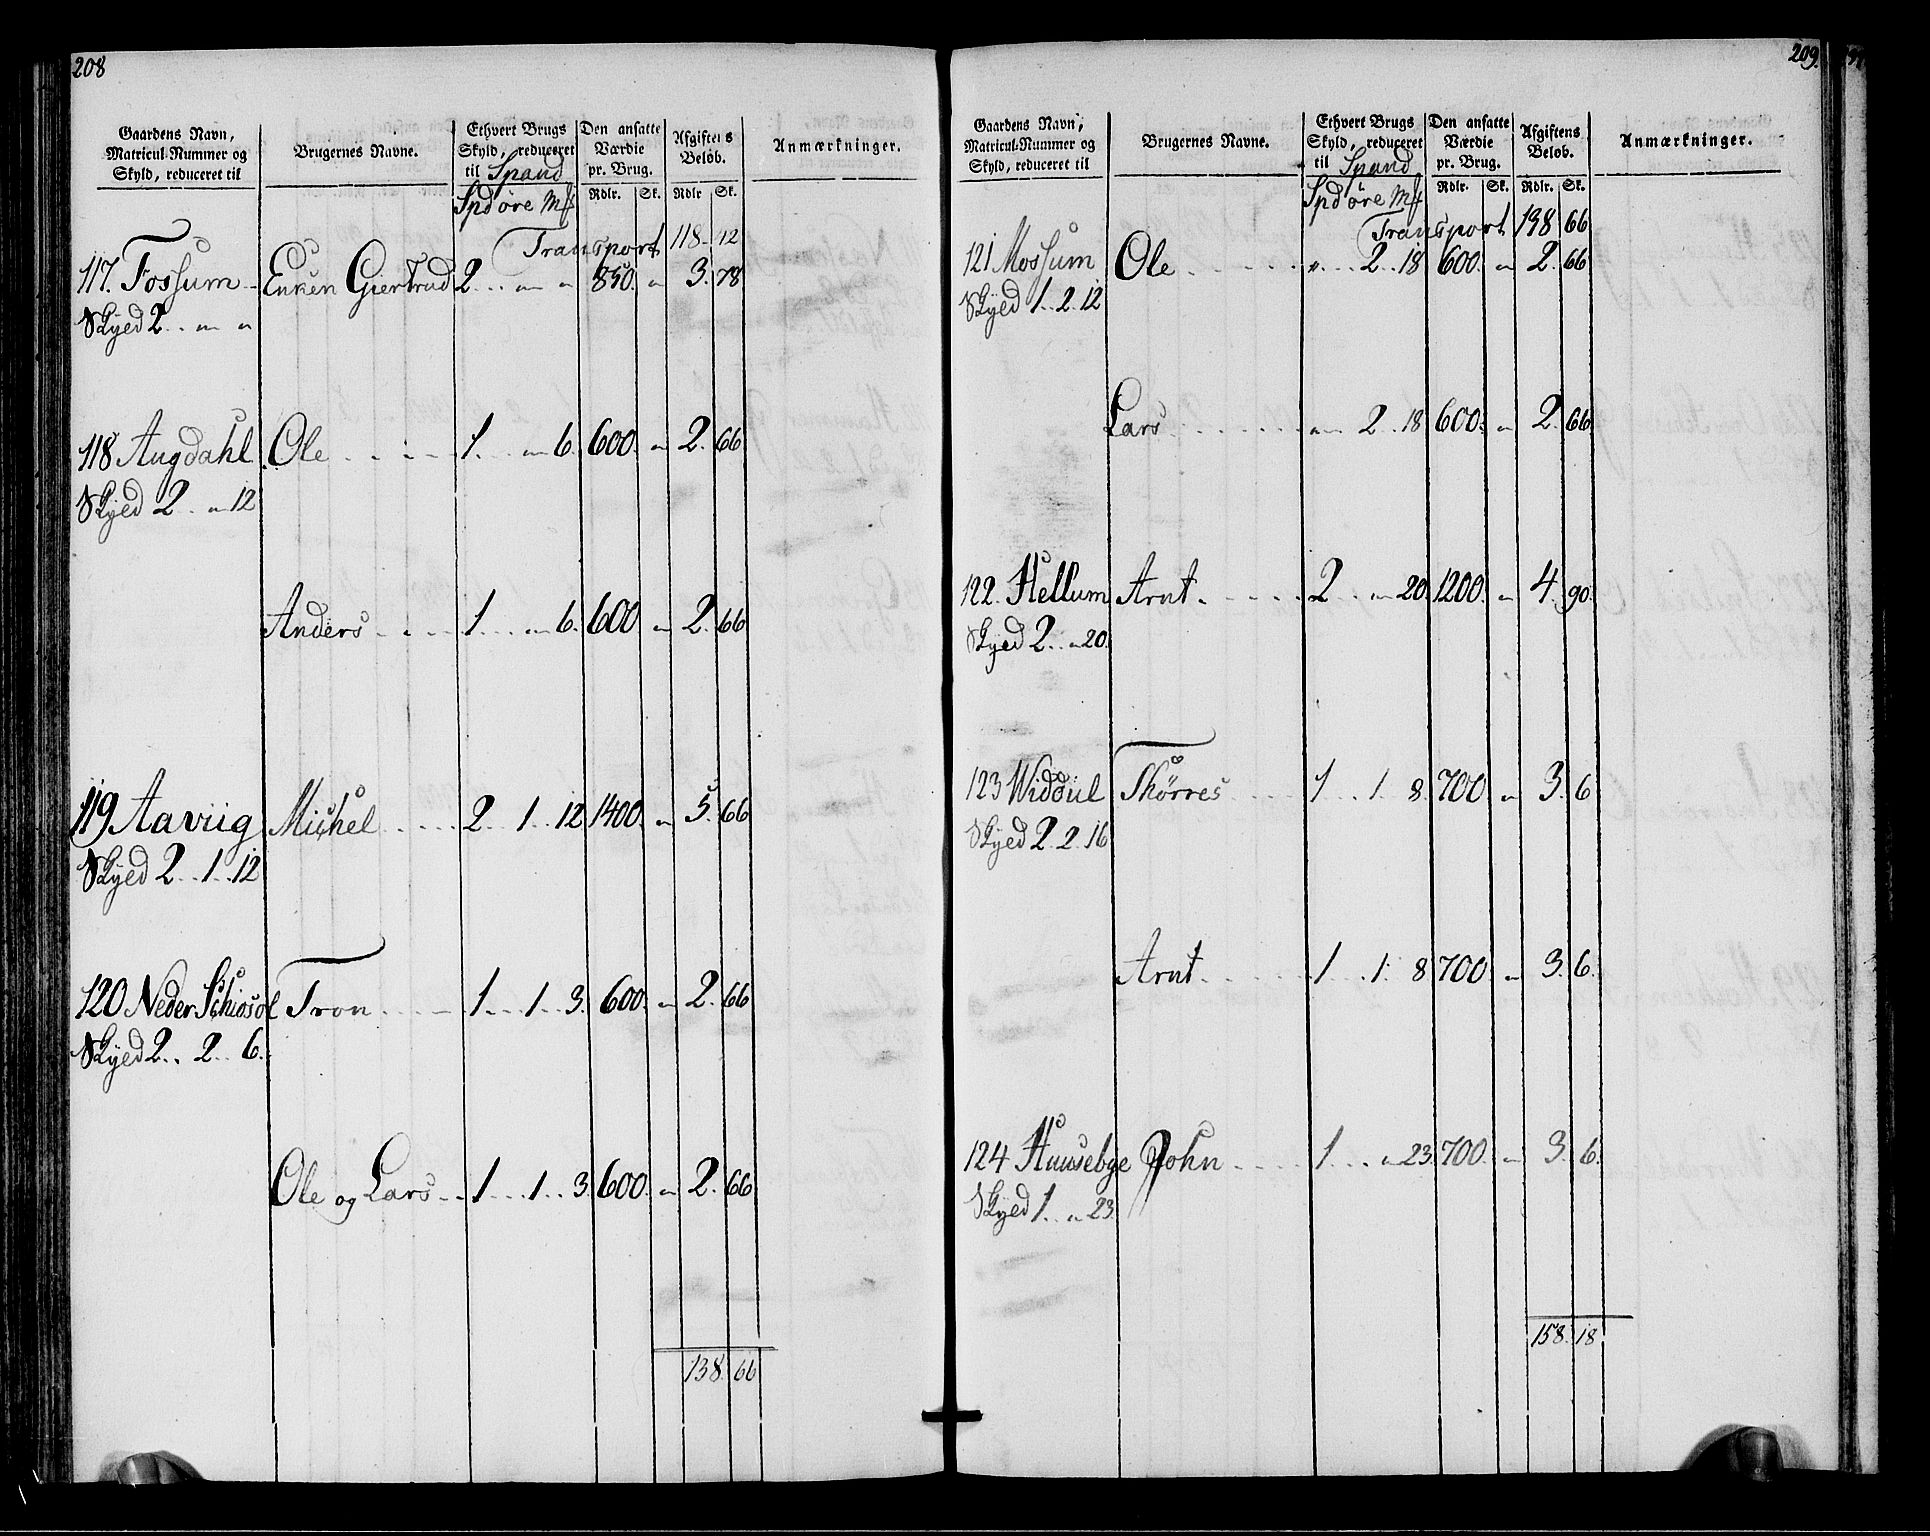 208
Gaardens Navn, Matricul-Nummer og Skyld, reduceret til | Brugernes Navne. | Ethvert Brugs Skyld, reduceret til Spand | Den ansatte Værdie pr. Brug. | Afgiftens Beløb. | Anmærkninger.
Spd øre Mk | Rdlr. Sk. | Rdlr Sk.
Transport 118 12
117. Fossum Enken Giertrud 2 " " 850. " 3. 78
Skyed 2 " "
118 Augdahl Ole 1 " 6. 600. " 2. 66
Skyed 2 " 12
Anders 1 " 6. 600 " 2. 66
119 Aaviig Michel 2 1 12 1400. " 5. 66
Skyed 2 1 12
120 Neder Schiøsøl Tron 1 1 3. 600. " 2. 66
Skyed 2 2 6.
Ole og Lars 1 1 3. 600. " 2. 66
138. 66
209.
Gaardens Navn, Matricul-Nummer og Skyld, reduceret til | Brugernes Navne. | Ethvert Brugs Skyld, reduceret til Spand | Den ansatte Værdie pr. Brug. | Afgiftens Beløb. | Anmærkninger.
Spd øre Mk | Rdlr. Sk. | Rdlr. Sk.
Transport 138 66
121 Mossum Ole " 2 18 600. " 2. 66
Skyed 1 2 12
Lars " 2 18 600. " 2. 66
122. Hellum Arnt 2 " 20. 1200. " 4. 90.
Skyed 2 " 20.
123 Widdul Thørres 1 1 8. 700. " 3. 6
Skyed 2 2 16
Arnt 1 1 8. 700. " 3. 6.
124 Huusebye John 1 " 23. 700. " 3. 6.
Skyed 1 " 23.
158. 18